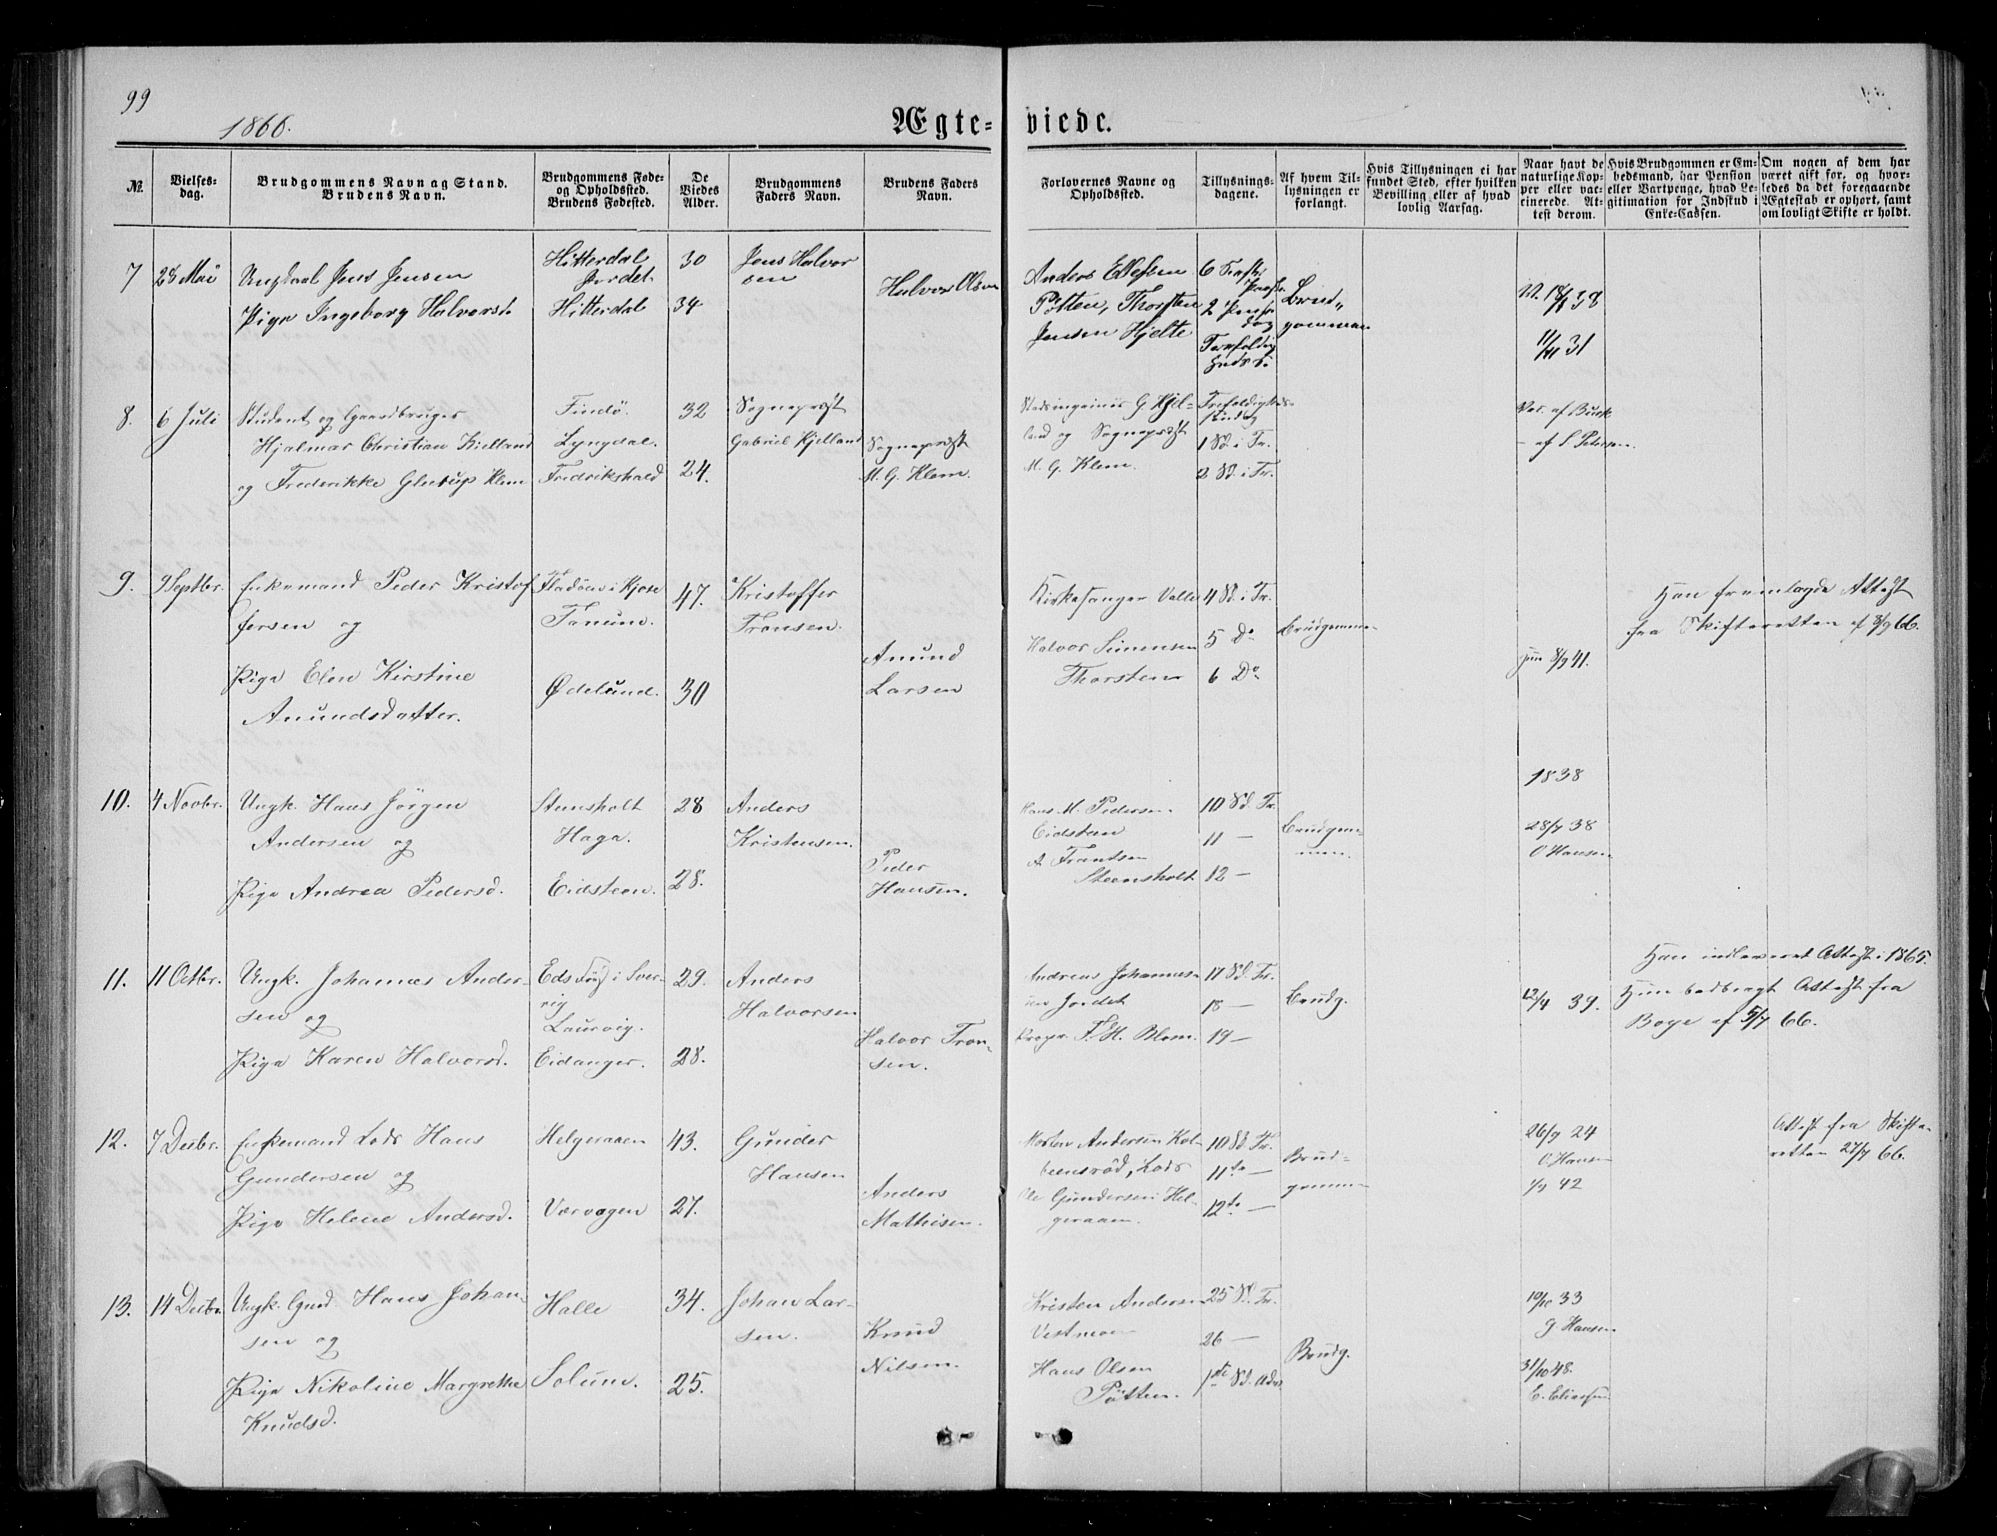 99
1866.
Ægte- viede.
No.
Vielses-
dag.
Brudgommens Navn og Stand.
Brudens Navn.
Brudgommens Føde-
og Opholdssted.
Brudens Fødested.
De
Viedes
Alder.
Brudgommens
Faders Navn.
Brudens Faders
Navn.
Forlovernes Navne og
Opholdssted.
Tillysnings-
dagene.
Af hvem Til-
lysningen er
forlangt.
Hvis Tillysningen ei har
fundet Sted, efter hvilken
Bevilling eller af hvad
lovlig Aarsag.
Naar havt de
naturlige Kop-
per eller vac-
cinerede. At-
test derom.
Hvis Brudgommen er Em-
bedsmand, har Pension
eller Vartpenge, hvad Le-
gitimation for Indskud i
Enke-Cassen.
Om nogen af dem har
været gift før, og hvor-
ledes da det foregaaende
Ægteskab er ophørt, samt
om lovligt Skifte er holdt.
7
28 Mai
Ungkarl Jens Jensen
Pige Ingeborg Halvorsd.
Hitterdal
Jordet
Hitterdal
30
34
Jens Halvor
sen
Halvor Olsen
Anders Ellefsen
Pøtten, Thorsten
Jensen Hjelte
6
2
dag
Brud„
gommen
18/ 38
11/11 31
8.
6 Juli
Student og Gaardbruger
Hjalmar Christian Kielland
og Frederikke Glerup Klem
Findö.
Lyngdal.
Fredrikshald
32
24.
Sogneprest
Gabriel Kjelland
Sogneprest
M. G. Klem.
Stadsingeniør G. Kjel-
land og Sogneprest
M. G. Klem.
Trefoldigheds-
søndag
1 Sd. i Tr.
2 Sd. i Tr.
Vac. af Buck
- af S. Petersen.
9.
9 Septbr.
Enkemand Peder Kristof
fersen og
Pige Elen Kirstine
Anundsdatter.
Fladöen i Kjose
Tanum.
Ødelund.
47.
30
Kristoffer
Fransen.
Anund
Larsen
Kirkesanger Valle
Halvor Simensen
Thorsten
4 Sd. i Tr.
5 Do
6 Do
Brudgomme
8/9 41.
Han fremlagde Attest
fra Skifteretten af 3/9 66.
10.
4 Novbr.
Ungk. Hans Jörgen
Andersen og
Pige Andrea Pedersd.
Stensholt
Haga.
Eidsteen.
28
28.
Anders
Kristensen.
Peder
Hansen.
Hans M. Pedersen
Eidsten
A. Frantsen
Steensholt
10 Sd. Tr.
11 —
12 —
Brudgom-
men.
1838
28/7 38
O Hansen
11.
11 Octbr.
Ungk. Johannes Ander-
sen og
Pige Karen Halvorsd.
Eds i Sver-
rig
Laurvig.
Eidanger.
29.
28.
Anders
Halvorsen
Halvor Fran-
sen.
Andreas Johannes-
sen Jordet
F. H. Blom.
17 Sd. Tr.
18 —
19 —
Brudg.
12/4 39.
Han indleveret Attest i 1865.
Hun bedbragt Attest fra
Boye af 5/7 66.
12.
7 Decbr.
Enkemand Lods Hans
Gundersen og
Pige Helene Andersd.
Helgeraaen
Værvagen
43.
27.
Gunder
Hansen
Anders
Mathisen.
Morten Andersen Kol-
beensröd, Lods
Ole Gundersen Hel-
geraaen.
10 Sd Tr.
11te —
12te —
Brud-
gomme
26/9 24
O Hansen
1/9 42
Attest fra Skifte-
retten 27/7 66.
13.
14 Decbr.
Ungk. Gmd. Hans Johan-
sen og
Pige Nikoline Margrethe
Knudsd.
Halle
Solum.
34.
25.
Johan Lar-
sen.
Knud
Nilsen.
Kristen Andersen
Vestmoen
Hans Olsen
Pøtten.
25 Sd. Tr.
26 —
1ste Sd. Adv.
Brudg.
10/10 33
G Hansen
31/10 48.
E. Eliassen